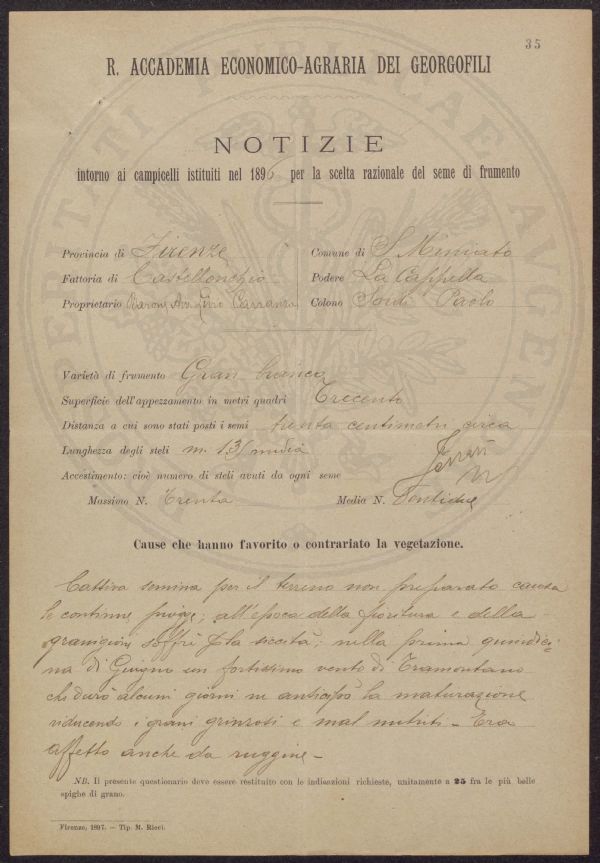 35
R. ACCADEMIA ECONOMICO-AGRARIA DEI GEORGOFILI
NOTIZIE
intorno ai campicelli istituiti nel 1896 per la scelta razionale del seme di frumento
Provincia di Firenze
Comune di S. Miniato
Fattoria di Castellonchio
Podere La Cappella
Proprietario Barone Carranza
Colono Sordi Paolo
Varietà di frumento Gran bianco
Superficie dell'appezzamento in metri quadri Trecento
Distanza a cui sono stati posti i semi trenta centimetri circa
Lunghezza degli steli m. 1.3 media
Accestimento: cioè numero di steli avuti da ogni seme
Massimo N. Trenta
Medio N. Ventidue
Cause che hanno favorito o contrariato la vegetazione.
Cattiva semina per il terreno non preparato causa
le continue piogge; all'epoca della fioritura e della
granigione soffrì la siccità; nella prima quindici-
na di Giugno un fortissimo vento di Tramontano
che durò alcuni giorni ne anticipò la maturazione
riducendo i grani grinzosi e mal nutriti - Era
affetto anche da ruggine -
NB. Il presente questionario deve essere restituito con le indicazioni richieste, unitamente a 25 fra le più belle
spighe di grano.
Firenze, 1897. — Tip. M. Ricci.